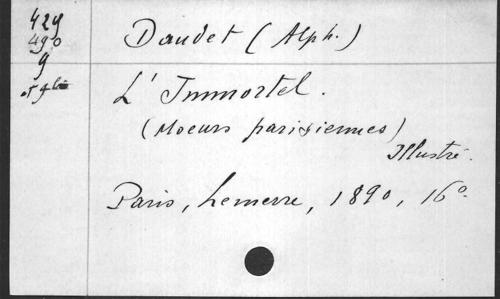 429
490
9
Daudet (Alph.)
L'Immortel.
(Moeurs parisiennes)
Illustré.
Paris, Lemerre, 1890, 16°.